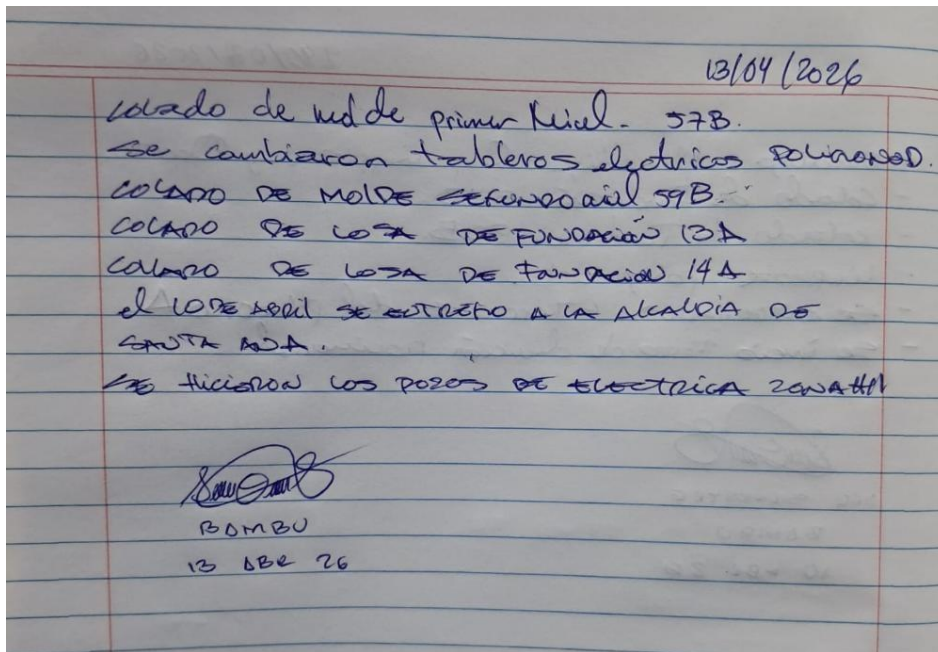 13/04/2026
colado de red de primer Nivel. 57B.
Se cambiaron tableros electricos POLIGONO D.
COLADO DE MOLDE SEGUNDO nivel 59B.
COLADO DE LOSA DE FUNDACIÓN 13A
COLADO DE LOSA DE FUNDACION 14A
el 10 DE ABRIL SE ENTREGO A LA ALCALDIA DE
SANTA ANA.
SE HICIERON LOS POZOS DE ELECTRICA ZONA
BOMBU
13 ABR 26